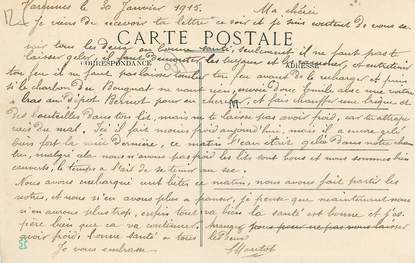 Varennes le 20 Janvier 1915. Ma chérie
Je viens de recevoir ta lettre ce soir et je suis content de vous sa-
voir tous les deux en bonne santé, seulement il ne faut pas te
CARTE POSTALE
laisser geler, il faut démonter les tuyaux et les, et entretenir
CORRESPONDANCE
ADRESSE
ton feu il ne faut pas laisser tomber ton feu avant de le recharger et puis
si le charbon du Bougnat ne vaut rien, envoie donc Emile avec une voiture
à bras au dépot Bernot pour en chercher, et fais chauffer une brique et
des bouteilles dans ton lit, mais ne te laisse pas avoir froid, car tu attrape-
rais du mal, Ici il fait moins froid aujourd'hui, mais il a encore gelé
bien fort la nuit dernière, ce matin l'eau était gelée dans notre cham-
bre, malgré cela nous n'avons pas froid les lits sont bons et nous sommes bien
couverts, le temps a l'air de se tenir au sec.
Nous avons embarqué nos bêtes ce matin, nous avons fait partir les
notres, et nous n'en avons plus à panser, je pense que maintenant nous
n'en aurons plus trop, enfin tout va bien la santé est bonne et j'es-
père bien que ca va continuer. pour ne pas vous laisser
avoir froid, bonne santé à tous les deux
Je vous embrasse